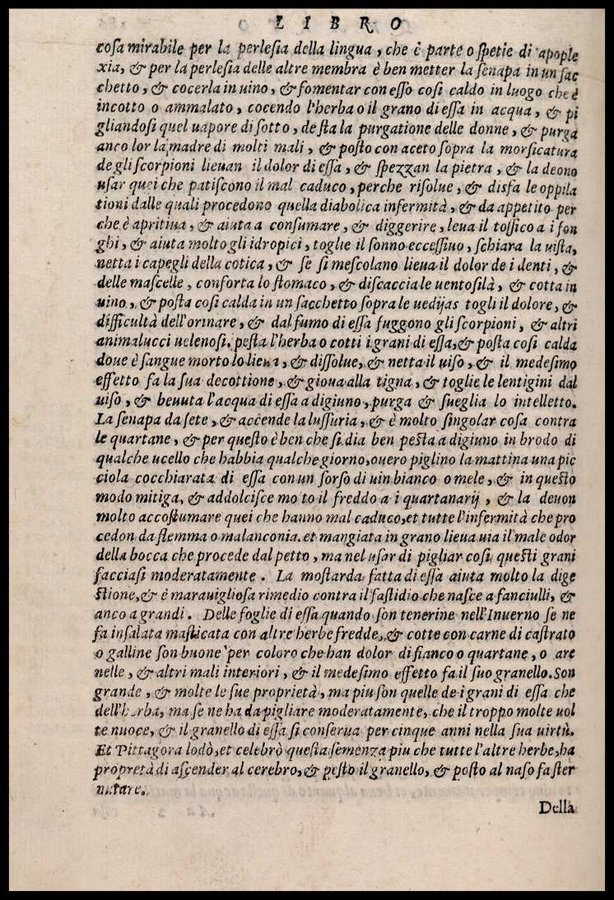 LIBRO
coſa mirabile per la perleſia della lingua, che è parte o ſpetie di apople
xia, & per la perleſia delle altre membra è ben metter la ſenapa in un ſac
chetto, & cocerla in uino, & fomentar con eſſo coſi caldo in luogo che è
incotto o ammalato, cocendo l'herba o il grano di eſſa in acqua, & pi
gliandoſi quel uapore di ſotto, deſta la purgatione delle donne, & purga
anco lor la madre di molti mali, & poſto con aceto ſopra la morſicatura
de gli ſcorpioni lieuan il dolor di eſſa, & ſpezzan la pietra, & la deono
uſar quei che patiſcono il mal caduco, perche riſolue, & disfa le oppila
tioni dalle quali procedono quella diabolica infermità, & da appetito per
che è apritiua, & aiuta a conſumare, & diggerire, leua il toſſico a i fon
ghi, & aiuta molto gli idropici, toglie il ſonno ecceſſiuo, ſchiara la uiſta,
netta i capegli della cotica, & ſe ſi meſcolano lieua il dolor de i denti, &
delle maſcelle, conforta lo ſtomaco, & diſcaccia le uentoſità, & cotta in
uino, & poſta coſi calda in un ſacchetto ſopra le uedijas togli il dolore, &
difficultà dell'orinare, & dal fumo di eſſa fuggono gli ſcorpioni, & altri
animalucci uelenoſi. peſta l'herba o cotti i grani di eſſa, & poſta coſi calda
doue è ſangue morto lo lieua, & diſſolue, & netta il uiſo, & il medeſimo
effetto fa la ſua decottione, & gioua alla tigna, & toglie le lentigini dal
uiſo, & beuuta l'acqua di eſſa a digiuno, purga & ſueglia lo intelletto.
La ſenapa da ſete, & accende la luſſuria, & è molto ſingolar coſa contra
le quartane, & per queſto è ben che ſi dia ben peſta a digiuno in brodo di
qualche ucello che habbia qualche giorno, ouero piglino la mattina una pic
ciola cocchiarata di eſſa con un ſorſo di uin bianco o mele, & in queſto
modo mitiga, & addolciſce mo to il freddo a i quartanarij, & la deuon
molto accoſtumare quei che hanno mal caduco, et tutte l'infermità che pro
cedon da flemma o malanconia. et mangiata in grano lieua uia il male odor
della bocca che procede dal petto, ma nel uſar di pigliar coſi queſti grani
facciaſi moderatamente. La moſtarda fatta di eſſa aiuta molto la dige
ſtione, & è marauiglioſa rimedio contra il faſtidio che naſce a fanciulli, &
anco a grandi. Delle foglie di eſſa quando ſon tenerine nell'Inuerno ſe ne
fa inſalata maſticata con altre herbe fredde, & cotte con carne di caſtrato
o galline ſon buone per coloro che han dolor di fianco o quartane, o are
nelle, & altri mali interiori, & il medeſimo effetto fa il ſuo granello. Son
grande, & molte le ſue proprietà, ma piu ſon quelle de i grani di eſſa che
dell'herba, ma ſe ne ha da pigliare moderatamente, che il troppo molte uol
te nuoce, & il granello di eſſa ſi conſerua per cinque anni nella ſua uirtù.
Et Pittagora lodò, et celebrò queſta ſemenza piu che tutte l'altre herbe, ha
propretà di aſcender al cerebro, & peſto il granello, & poſto al naſo fa ſter
nutare.
Della